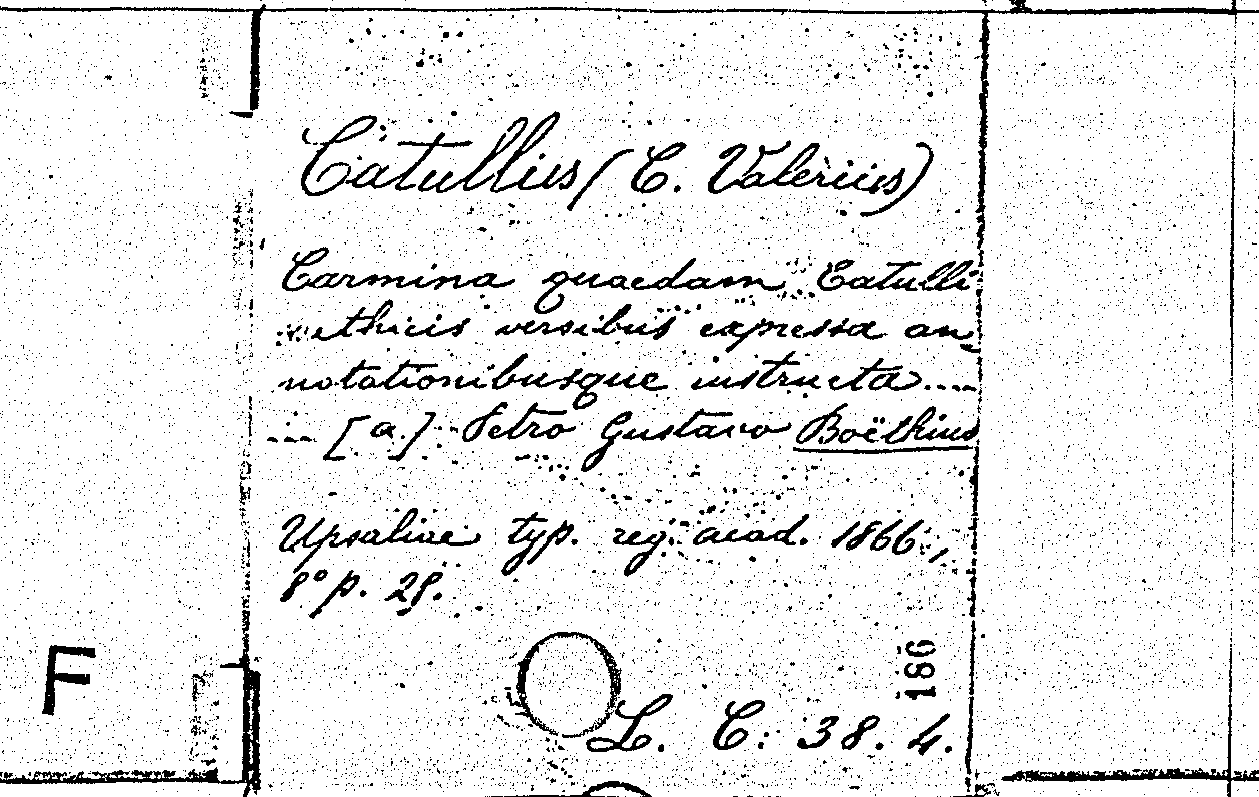 Catullus (C. Valerius)
Carmina quaedam Catulli
versibus expressa an
notationibusque instructa.....
--- [a.] Petro Gustavo Boëthius
Upsaliae typ. reg. acad. 1866.,
8° p. 28.
186
F
L. C: 38. 4.